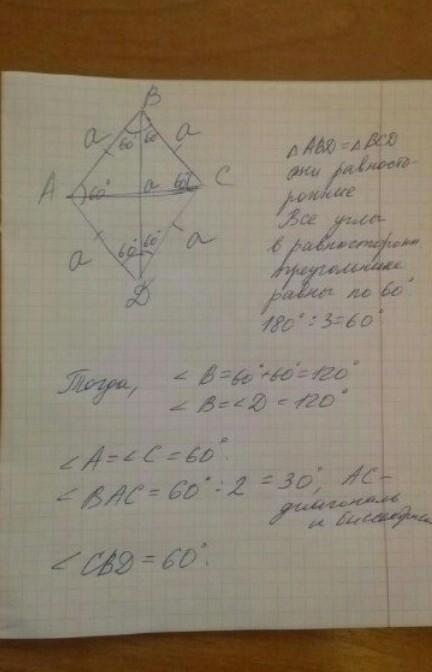 B
a
a
60° 60
A
60°
a
60°
C
a
60° 60°
a
D
△ABD = △BCD
они равносто-
ронние
Все углы
в равносторонн.
треугольнике
равны по 60°
180° : 3 = 60°
Тогда, ∠B = 60° + 60° = 120°
∠B = ∠D = 120°
∠A = ∠C = 60°.
∠BAC = 60° : 2 = 30°, AC -
диагональ
и биссектриса
∠CBD = 60°.